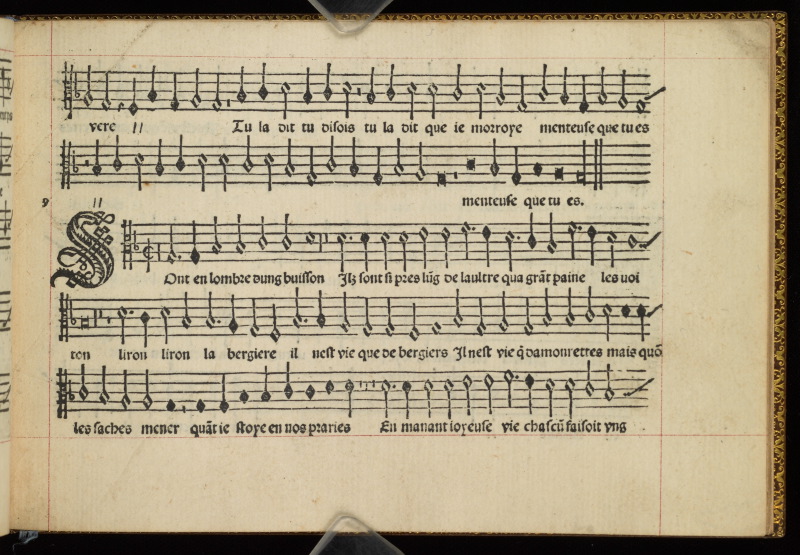 vere // Tu la dit tu disois tu la dit que ie morroye menteuse que tu es
9 // menteuse que tu es.
SOnt en lombre dung buisson Ilz sont si pres lũg de laultre qua grãt paine les uoi
ton liron liron la bergiere il nest vie que de bergiers Il nest vie q̃ damourettes mais quõ
les saches mener quãt ie stoye en nos praries En manant ioyeuse vie chascũ faisoit vng